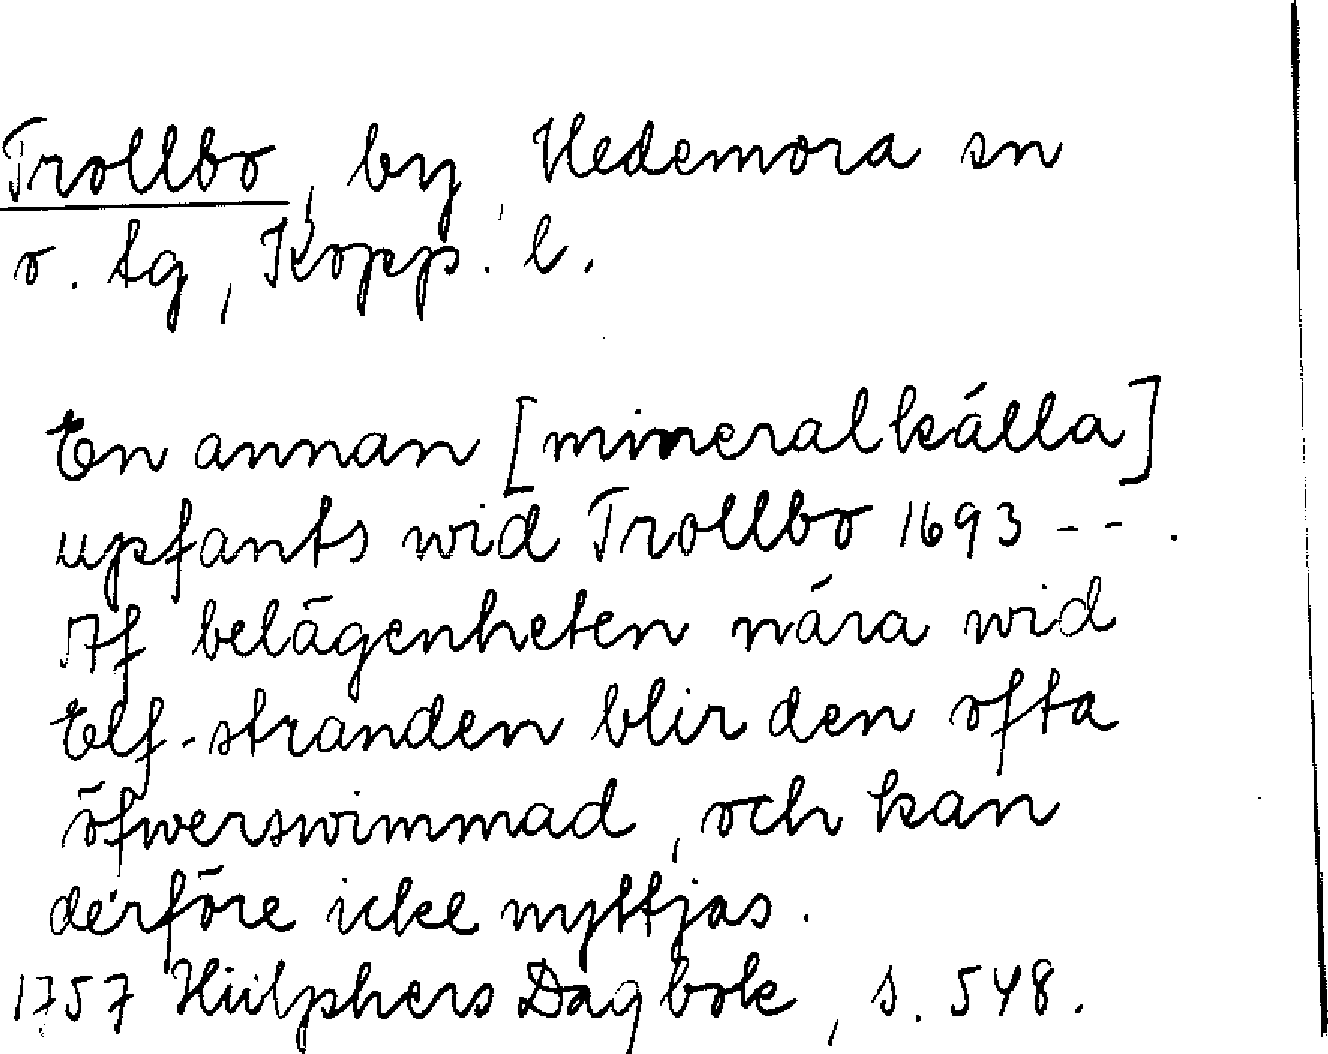 Trollbo, by, Hedemora sn
o. tg, Kopp. l.
En annan [mineralkälla]
upfants wid Trollbo 1693 - - .
Af belägenheten nära wid
Elf-stranden blir den ofta
öfwerswimmad, och kan
derföre icke nyttjas.
1757 Hülphers Dagbok, s. 548.